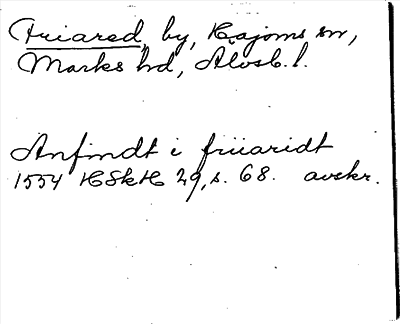 Friared, by, Kajoms sn,
Marks hd, Älvsb. l.
Anfindt i friiaridt
1554 HSkH 29, s. 68. avskr.